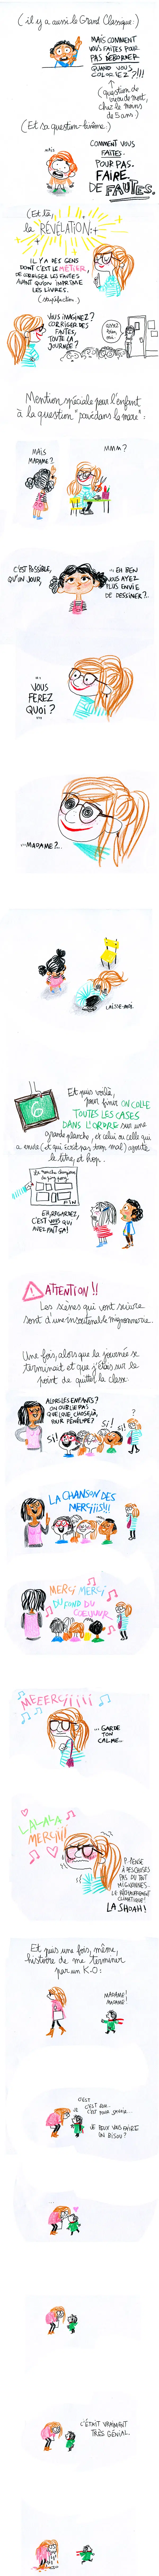 (il y a aussi le Grand Classique:)
MAIS COMMENT
VOUS FAITES POUR
PAS DÉBORDER
QUAND VOUS
COLORIEZ?!!!
(question de
vie ou de mort,
chez le moins
de 5 ans)
(Et sa question-jumelle:)
MAIS
COMMENT VOUS
FAITES.
POUR PAS.
FAIRE
DE FAUTES.
(Et là,
la RÉVÉLATION!:
IL Y A DES GENS
DONT C'EST LE MÉTIER,
DE CORRIGER LES FAUTES
AVANT QU'ON IMPRIME
LES LIVRES.
(stupéfaction)
VOUS IMAGINEZ?
CORRIGER DES
FAUTES
TOUTE LA
JOURNÉE!
Mention spéciale pour l'enfant
à la question "pavé dans la mare":
MAIS
MADAME?
MMM?
C'EST POSSIBLE,
QU'UN JOUR,
..EH BEN
VOUS AYEZ
PLUS ENVIE
DE DESSINER?..
VOUS
FEREZ
QUOI?
...MADAME?...
LAISSE-MOI.
6
Et puis voilà,
pour finir ON COLLE
TOUTES LES CASES
DANS L'ORDRE sur une
grande planche, et celui ou celle qui
a envie (et qui écrit pas trop mal) ajoute
le titre, et hop.
FIN
EH, REGARDEZ,
C'EST VOUS QUI
AVEZ FAIT ÇA!
ATTENTION!!
Les scènes qui vont suivre
sont d'une insoutenable mignonnerie.
Une fois, alors que la journée se
terminait et que j'étais sur le
point de quitter la classe:
ALORS LES ENFANTS?
ON OUBLIE PAS
QUELQUE CHOSE,
POUR PÉNÉLOPE?
SI!
SI!
SI!
?
LA CHANSON DES
MERCIIIS!!!
MERCI MERCI
DU FOND DU
COEUUUR
MEEERCIIIIII
..GARDE
TON
CALME..
LALALA
MERCIII
PENSE
À DES CHOSES
PAS DU TOUT
MIGNONNES.
LE RÉCHAUFFEMENT
CLIMATIQUE!
LA SHOAH!
Et puis une fois, même,
histoire de me terminer
par un K-O:
MADAME!
MADAME!
C'EST
C'EST
JE PEUX VOUS FAIRE
UN BISOU?
C'ÉTAIT VRAIMENT
TRÈS GÉNIAL.